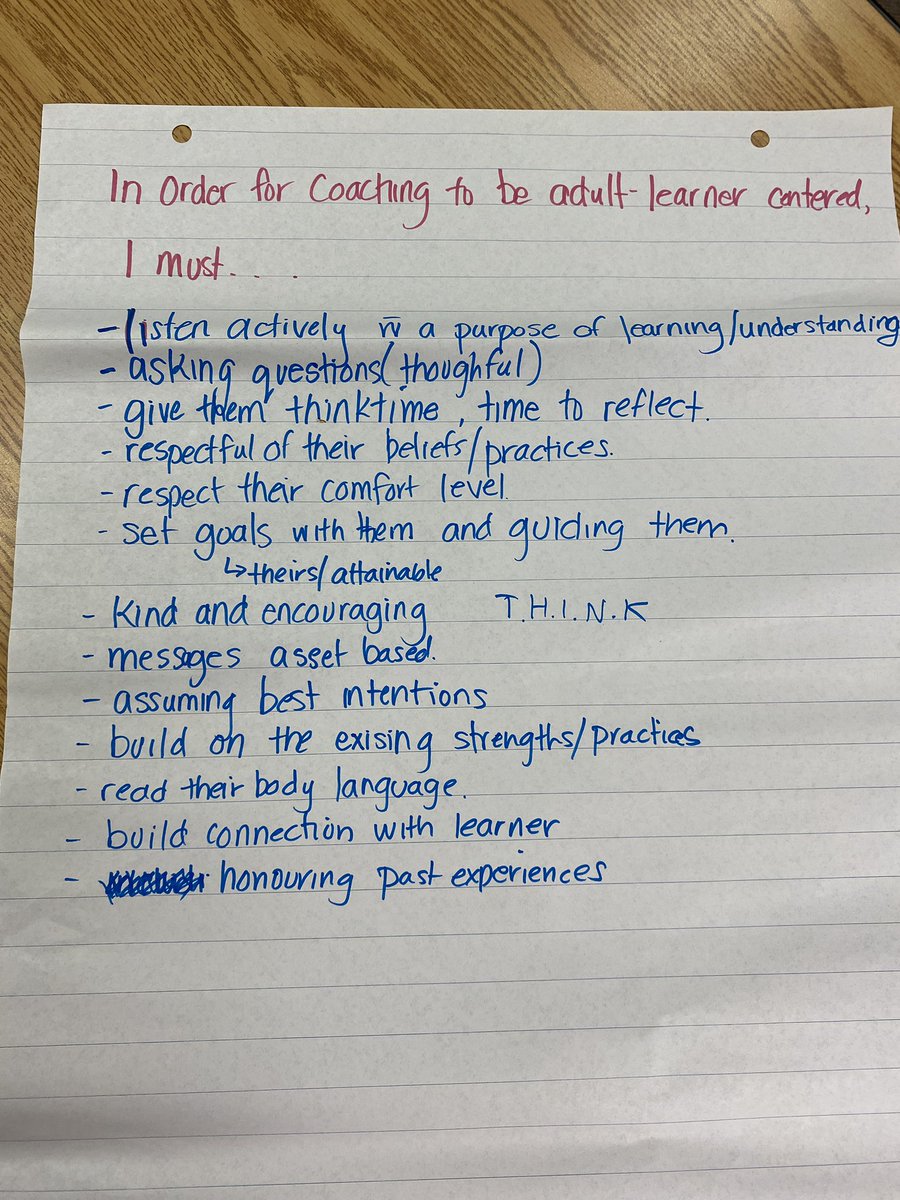 In Order for Coaching to be adult-learner centered,
I must....
- listen actively w̄ a purpose of learning/understanding
- asking questions (thoughtful)
- give them thinktime, time to reflect.
- respectful of their beliefs/practices.
- respect their comfort level.
- set goals with them and guiding them.
↳ theirs/attainable
- Kind and encouraging T.H.I.N.K
- messages asset based.
- assuming best intentions
- build on the exising strengths/practices
- read their body language.
- build connection with learner
- honouring past experiences